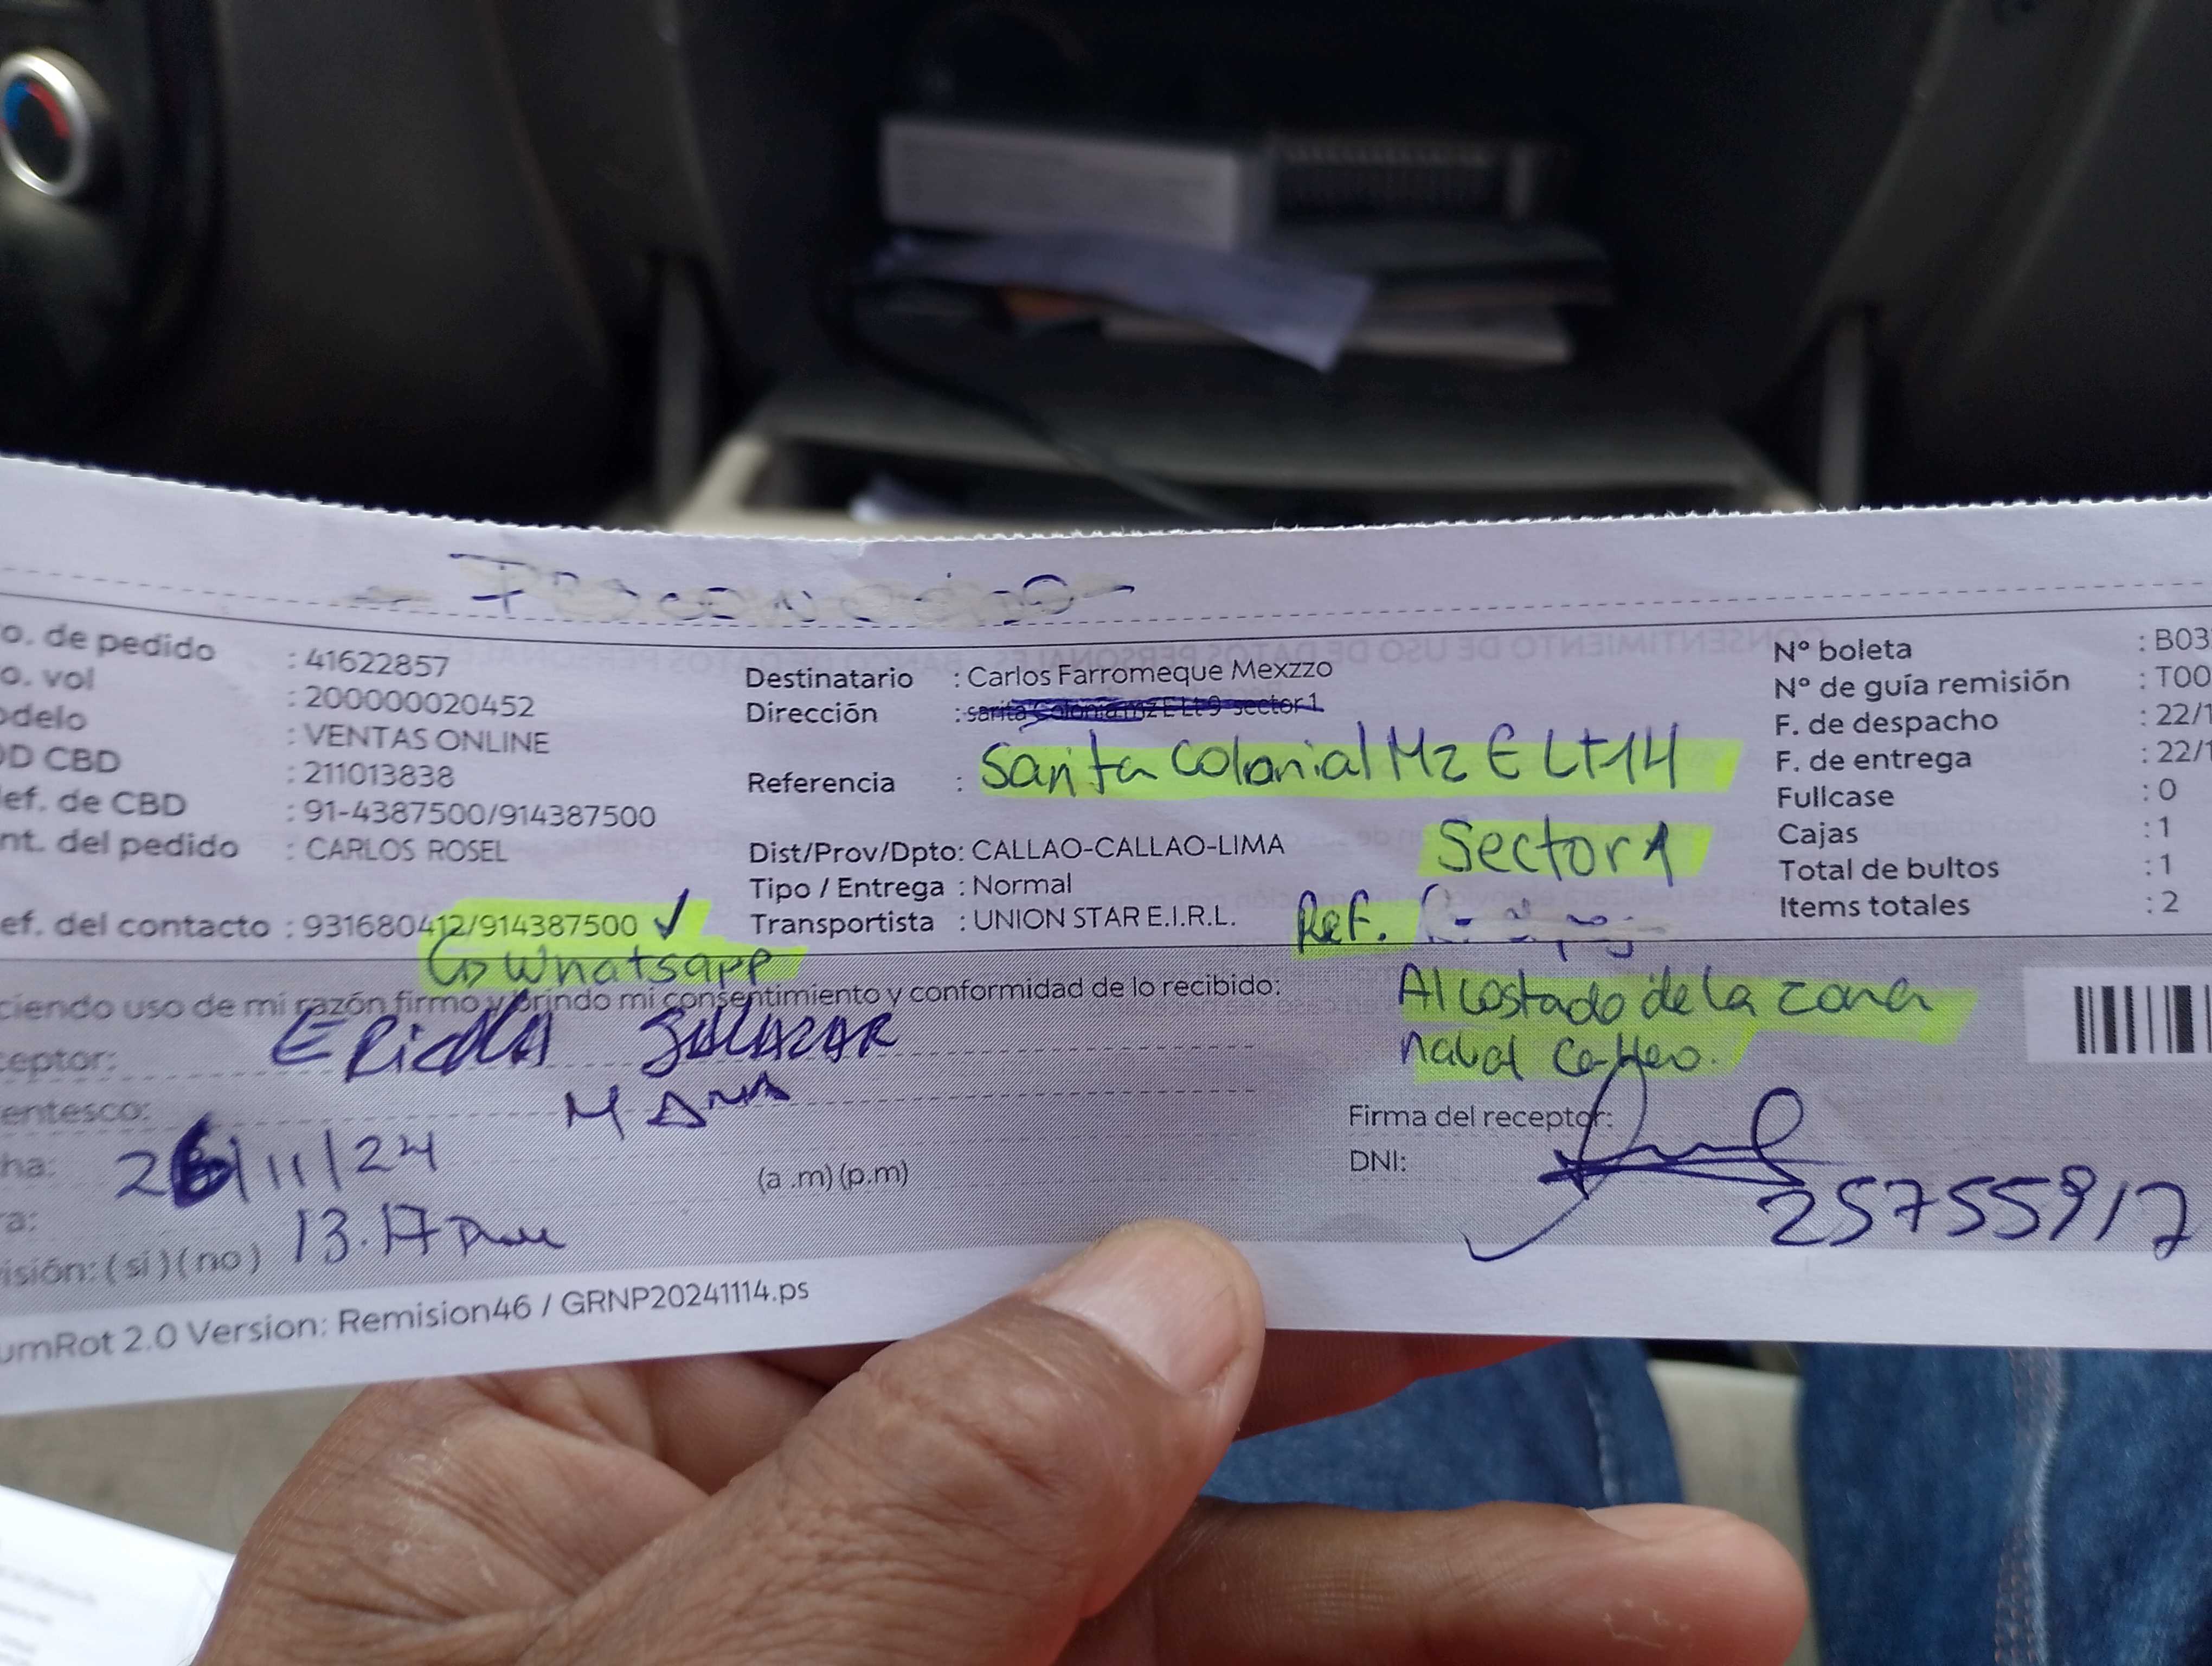 o. de pedido : 41622857
o. vol : 200000020452
odelo : VENTAS ONLINE
OD CBD : 211013838
ef. de CBD : 91-4387500/914387500
nt. del pedido : CARLOS ROSEL
ef. del contacto : 931680412/914387500 ✓
Whatsapp
Destinatario : Carlos Farromeque Mexzzo
Dirección : sarita Colonia mz E Lt 9 sector 1
Referencia : Sarita Colonial Mz E Lt 14
Sector 1
Dist/Prov/Dpto: CALLAO-CALLAO-LIMA
Tipo / Entrega : Normal
Transportista : UNION STAR E.I.R.L.
Ref.
Al costado de la zona
naval Callao.
Nº boleta : B03
Nº de guía remisión : T00
F. de despacho : 22/1
F. de entrega : 22/1
Fullcase : 0
Cajas : 1
Total de bultos : 1
Items totales : 2
ciendo uso de mi razón firmo y brindo mi consentimiento y conformidad de lo recibido:
ceptor: ERICKA SALAZAR
entesco: MAMA
ha: 26/11/24
(a .m) (p.m)
ra: 13.17 Pm
isión: (si) (no)
Firma del receptor:
DNI: 25755917
umRot 2.0 Version: Remision46 / GRNP20241114.ps